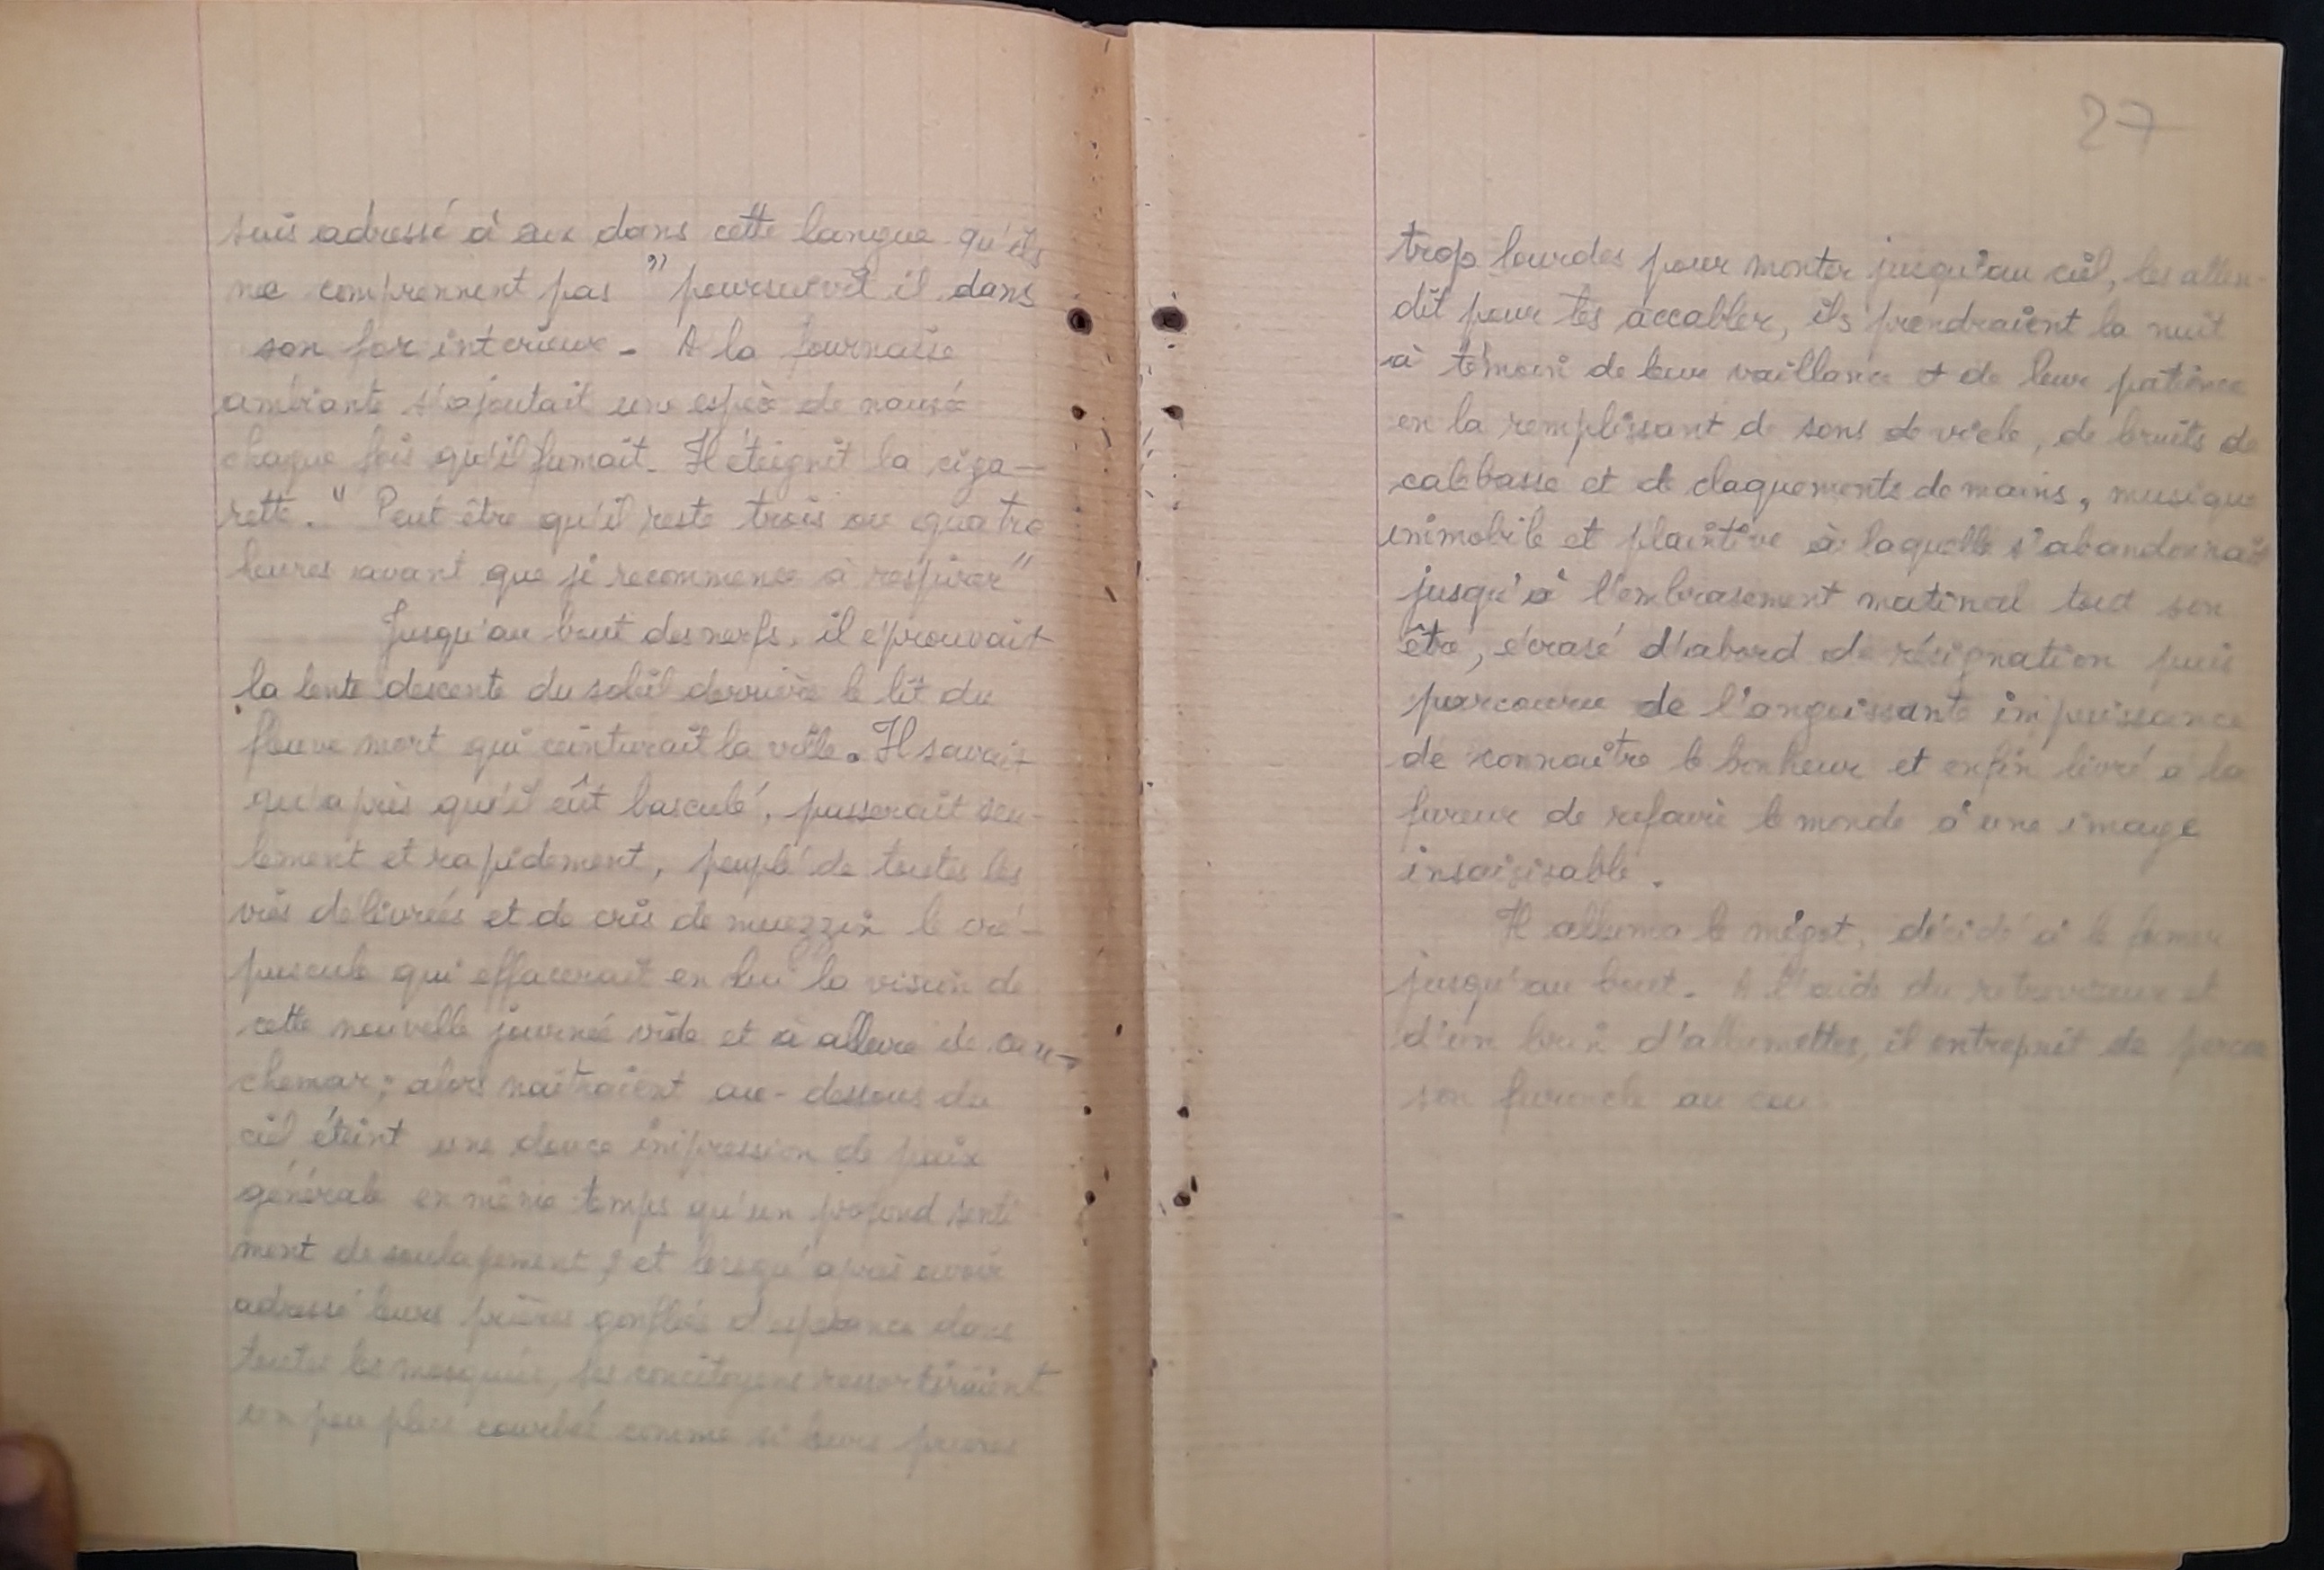 suis adressé à eux dans cette langue qu'ils
ne comprennent pas" poursuivit il dans
son for intérieur. A la fournaise
ambiante s'ajoutait une espèce de nausée
chaque fois qu'il fumait. Il éteignit la ciga-
rette. "Peut être qu'il reste trois ou quatre
heures avant que je recommence à respirer"
Jusqu'au bout des nerfs, il éprouvait
la lente descente du soleil derrière le lit du
fleuve mort qui ceinturait la ville. Il savait
qu'après qu'il eût basculé, passerait seu-
lement et rapidement, peuplé de toutes les
vies délivrées et de cris de muezzin le cré-
puscule qui effacerait en lui la vision de
cette nouvelle journée vide et à allure de cau-
chemar; alors naîtraient au-dessous du
ciel éteint une douce impression de paix
générale en même temps qu'un profond senti
ment de soulagement; et lorsqu'après avoir
adressé leurs prières gonflées d'espérance dans
toutes les mosquées, ses concitoyens ressortiraient
un peu plus courbés comme si leurs prières
27
trop lourdes pour monter jusqu'au ciel, les atten-
dît pour les accabler, ils prendraient la nuit
à témoin de leur vaillance et de leur patience
en la remplissant de sons de viele, de bruits de
calebasse et de claquements de mains, musique
immobile et plaintive à laquelle s'abandonnait
jusqu'à l'embrasement matinal tout son
être, écrasé d'abord de résignation puis
parcouru de l'angoissante impuissance
de connaître le bonheur et enfin livré à la
fureur de refaire le monde à une image
insaisisable.
Il alluma le mégot, décidé à le fumer
jusqu'au bout. A l'aide du retroviseur et
d'un brin d'allumettes, il entreprit de percer
son furoncle au cou